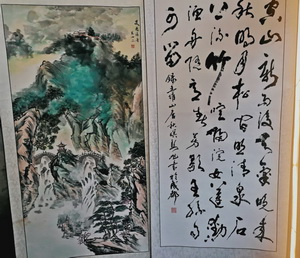 空山新雨後天氣晚來
秋明月松間照清泉石
上流竹喧歸浣女蓮動
下漁舟隨意春芳歇王孫自
可留
錄王維山居秋暝 書於成都